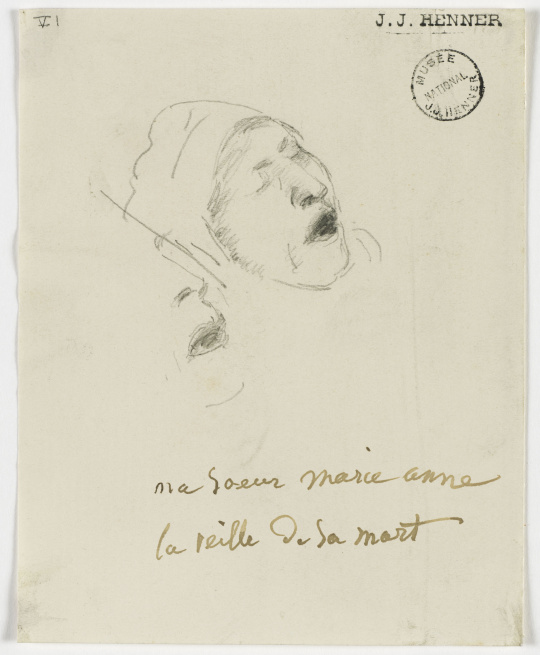 VI
J. J. HENNER
MUSÉE
NATIONAL
J.J. HENNER
ma soeur marie anne
la veille de sa mort